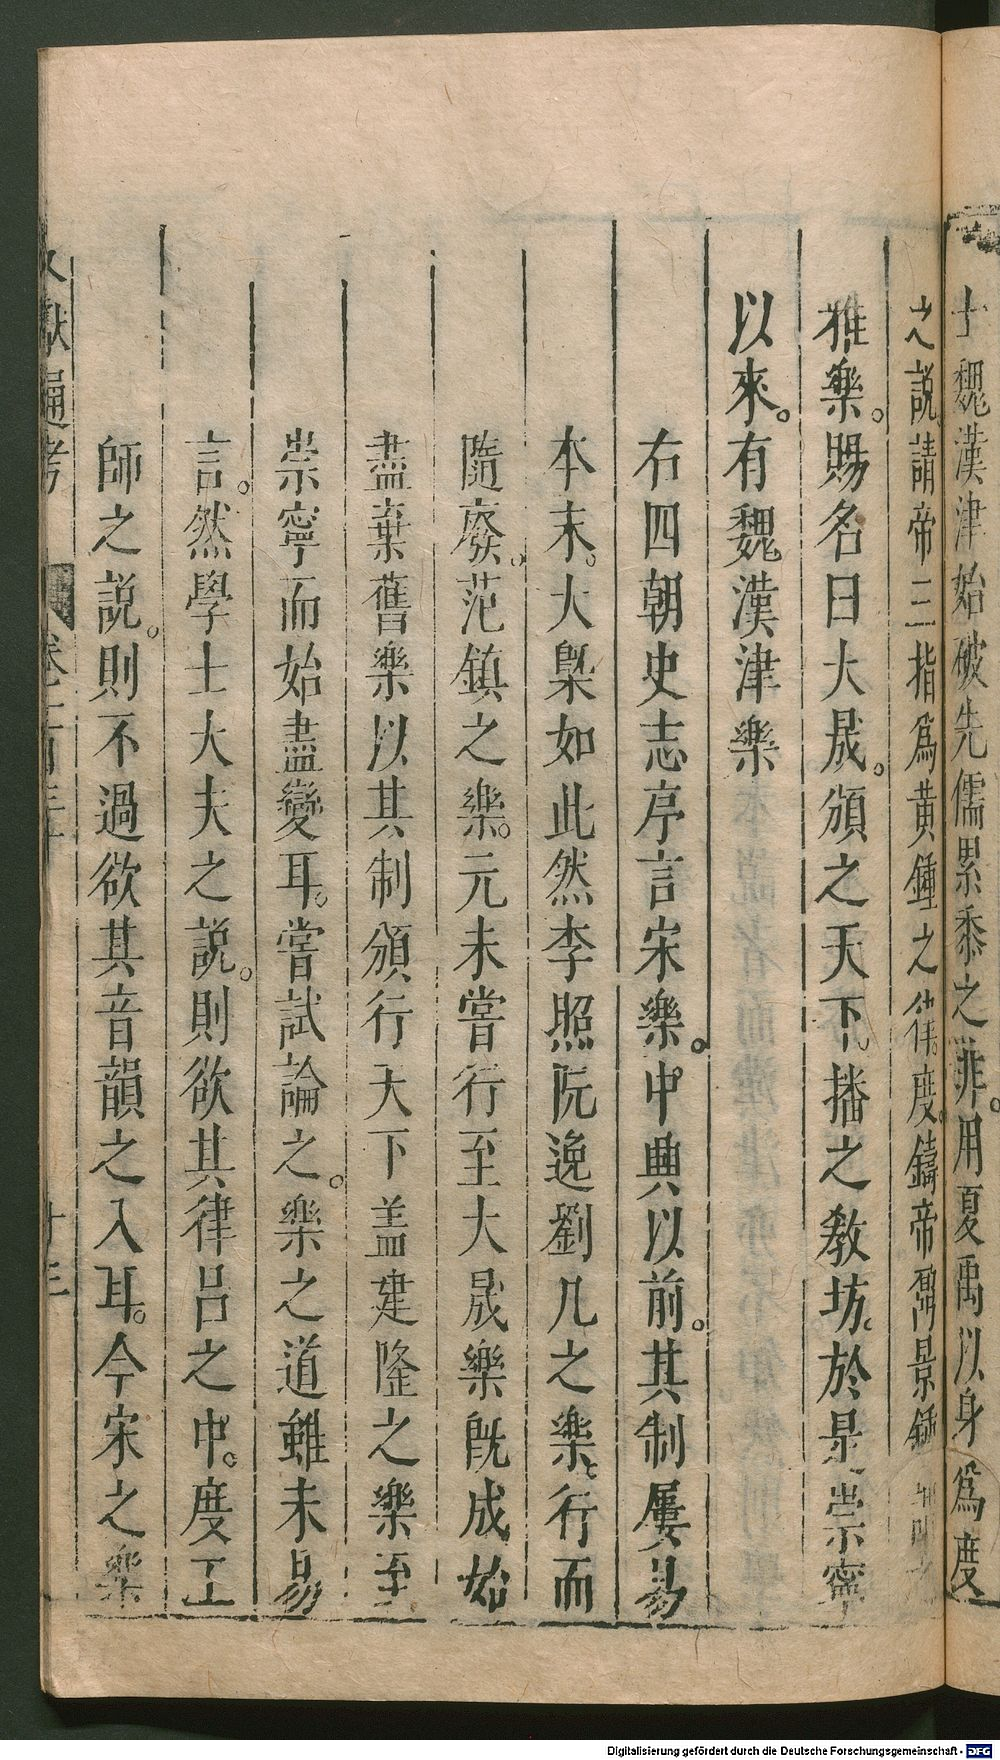 士魏漢津始破先儒累黍之非。用夏禹以身爲度
之說。請帝三指爲黃鍾之律度。鑄帝鼐景鍾
雅樂。賜名曰大晟。頒之天下。播之教坊。於是崇寧
以來。有魏漢津樂
右四朝史志序言宋樂。中興以前。其制屢易
本末。大槩如此然李照阮逸劉几之樂。行而
隨廢。范鎮之樂。元未嘗行至大晟樂旣成始
盡棄舊樂以其制頒行天下盖建隆之樂至
崇寧而始盡變耳。嘗試論之。樂之道雖未易
言。然學士大夫之說。則欲其律呂之中。度工
師之說。則不過欲其音韻之入耳。今宋之樂
文獻通考
卷一百三十
廿三
Digitalisierung gefördert durch die Deutsche Forschungsgemeinschaft - DFG